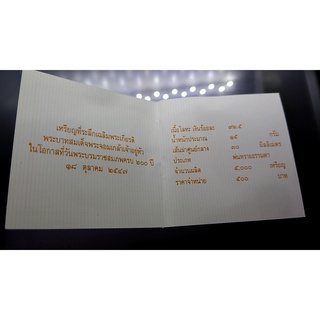 เหรียญที่ระลึกเฉลิมพระเกียรติ
พระบาทสมเด็จพระจอมเกล้าเจ้าอยู่หัว
ในโอกาสที่วันพระบรมราชสมภพครบ ๒๐๐ ปี
๑๘ ตุลาคม ๒๕๔๗
เนื้อโลหะ เงินร้อยละ ๙๒.๕
น้ำหนักประมาณ ๑๕ กรัม
เส้นผ่าศูนย์กลาง ๓๐ มิลลิเมตร
ประเภท พระพรหมธรรมดา
จำนวนผลิต ๕,๐๐๐ เหรียญ
ราคาจำหน่าย ๕๐๐ บาท